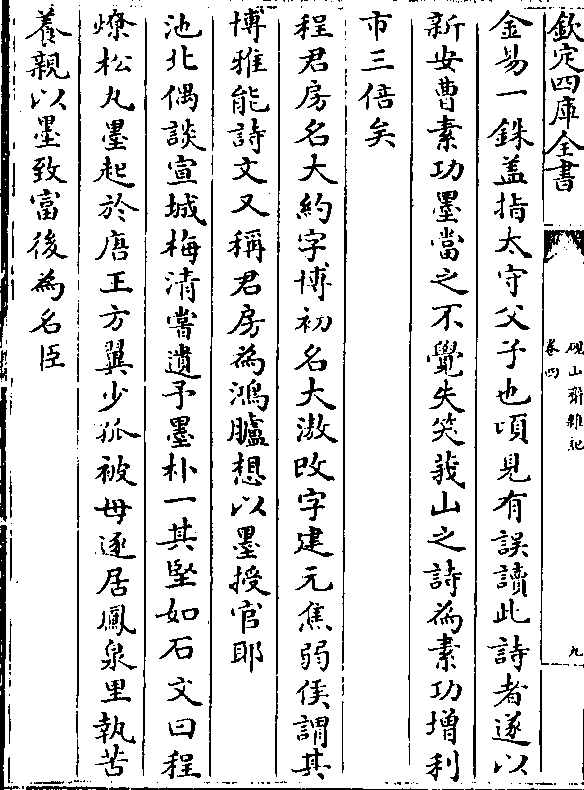 欽定四庫全書
硯山齋雜記
卷四
九
金易一銖盖指太守父子也頃見有誤讀此詩者遂以
新安曹素功墨當之不覺失笑莪山之詩為素功增利
市三倍矣
程君房名大約字博初名大滶改字建元焦弱侯謂其
博雅能詩文又稱君房為鴻臚想以墨授官耶
池北偶談宣城梅清嘗遺予墨朴一其堅如石文曰程
燎松丸墨起於唐王方翼少孤被母逐居鳳泉里執苦
養親以墨致富後為名臣